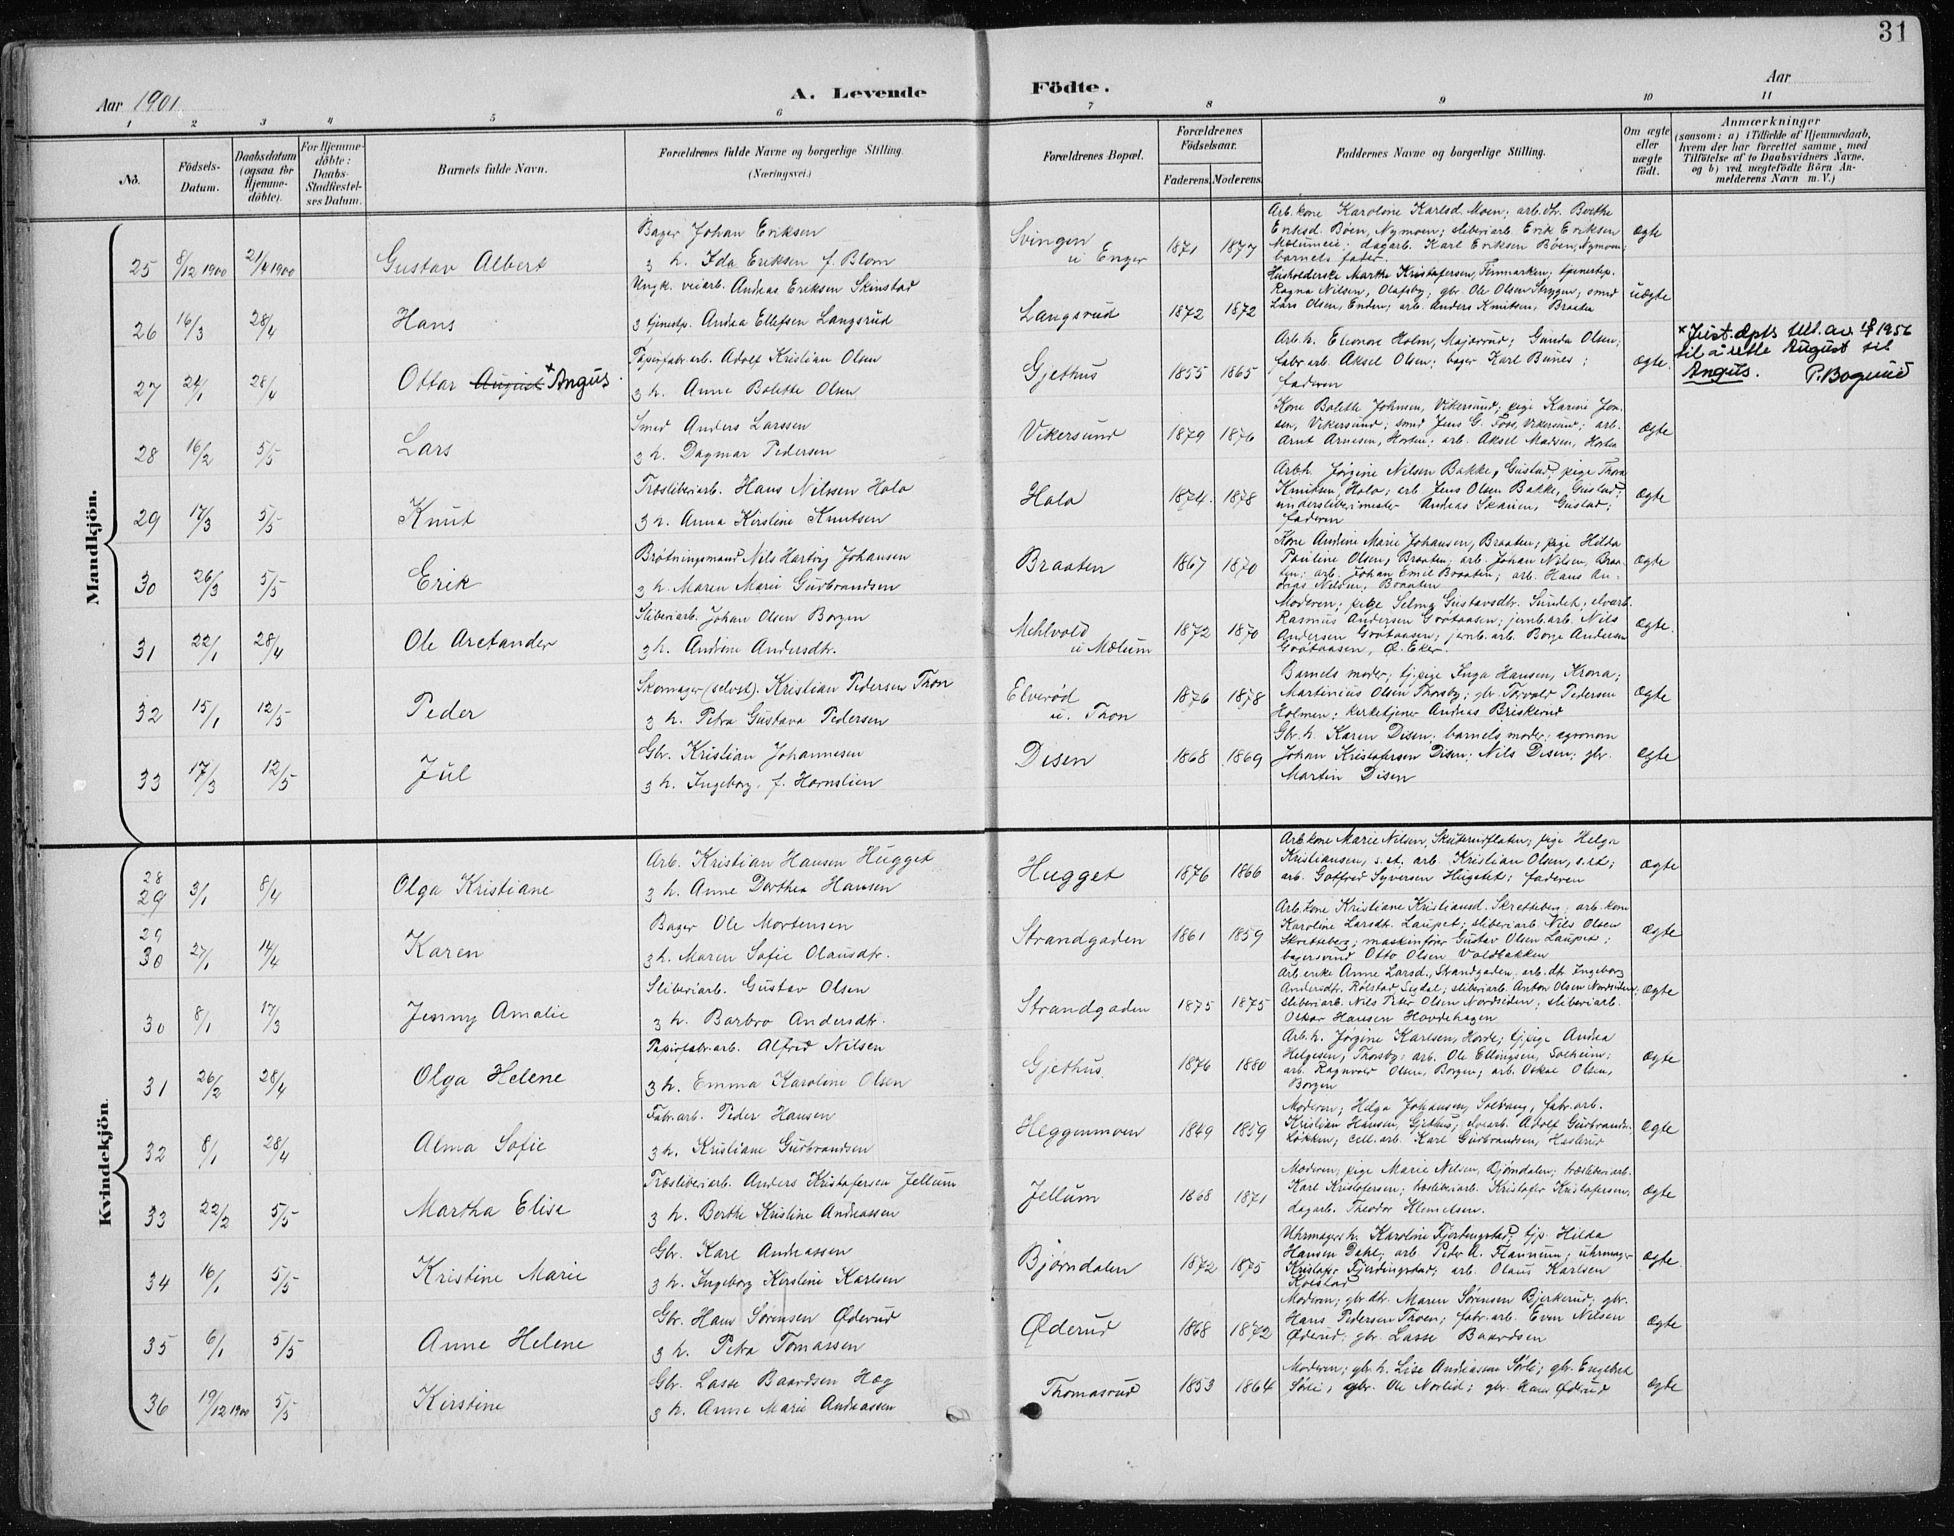 31
Aar 1901
A. Levende Födte.
Aar
1 2 3 4 5 6 7 8 9 10 11
No.
Födsels-Datum.
Daabsdatum (ogsaa for Hjemme-døbte).
For Hjemme-døbte: Daabs-Stadfæstel-ses Datum.
Barnets fulde Navn.
Forældrenes fulde Navne og borgerlige Stilling.
(Næringsvei.)
Forældrenes Bopæl.
Forældrenes Födselsaar.
Faderens. Moderens.
Faddernes Navne og borgerlige Stilling.
Om ægte eller uægte født.
Anmærkninger
(saasom: a) i Tilfælde af Hjemmedaab,
hvem der har forrettet samme, med
Tilföielse af to Daabsvidners Navne,
og b) ved uægtefödte Börn An-
melderens Navn m. V.)
Mandkjön.
25 8/12 1900 21/4 1900 Gustav Albert
Bager Johan Eriksen
3 h. Ida Eriksen f. Blom
Svingen u Enger 1871 1877
Arb.kone Karoline Karlsd. Moen; arb.dtr. Berthe
Eriksd. Böen, Nymoen; sliberiarb. Erik Eriksen
Mælumeie; dagarb. Karl Eriksen Böen, Nymoen;
barnets fader.
ægte
26 16/3 28/4 Hans
Ungk. veiarb. Andreas Eriksen Skinstad
3 tjenestp. Andrea Ellefsen Langsrud
Langsrud 1872 1872
Husholderske Marthe Kristofersen, Finmarken; tjenestep.
Ragna Nilsen, Olafsby; gbr. Ole Olsen Strygen; smed
Lars Olsen, Enden; arb. Anders Knutsen, Braaten
uægte
27 24/1 28/4 Ottar August × Angus.
Papirfabr.arb. Adolf Kristian Olsen
3 h. Anne Bolette Olsen
Gjethus 1855 1865
Arb.h. Eleonore Holm, Majorrud; Gunda Olsen;
fabr.arb. Aksel Olsen; bager Karl Bunes;
faderen
ægte.
× Just.dpts till. av 1956
til å rette August til
Angus. P. Bogerud
28 16/2 5/5 Lars
Smed Anders Larssen
3 h. Dagmar Pedersen
Vikersund 1879 1876
Kone Bolette Johnsen, Vikersund; pige Karine Jon-
sen, Vikersund; smed Jens G. Foss, Vikersund; arb.
Arnt Arnesen, Horten; arb. Aksel Madsen, Horten
ægte
29 17/3 5/5 Knut
Træsliberiarb. Hans Nilssen Hola
3 h. Anna Kirstine Knutsen
Hola 1874. 1878
Arb.h. Jørgine Nilsen Bakke, Gustad; pige Thora
Knutsen, Hola; arb Jens Olsen Bakke, Gustad;
undersliberimester Andreas Skauen, Gustad;
faderen
ægte
30 26/3 5/5 Erik
Brøtningsmand Nils Hartvig Johansen
3 h. Maren Marie Gudbrandsen
Braaten 1867 1870
Kone Andrine Marie Johansen, Braaten; pige Hilda
Pauline Olsen, Braaten; arb. Johan Nilsen, Braa-
ten; arb. Johan Emil Braaten; arb. Hans An-
dreas Nilsen, Braaten
ægte
31 22/1 28/4 Ole Arctander
Sliberiarb. Johan Olsen Borgen
3 h. Andrine Andersdtr.
Mehlvold u Mælum 1872 1870
Moderen; pige Selma Gustavsdtr. Sundet, elvarb.
Rasmus Andersen Gootaasen; jernb.arb. Nils
Andersen Grøtaasen; jernb.arb. Borge Andersen
Grøtaasen, Ø. Eker.
ægte.
32 15/1 12/5 Peder
Skomager (selvst). Kristian Pedersen Thon
3 h. Petra Gustava Pedersen
Elverød u. Thon 1876 1878
Barnets moder; tj.pige Inga Hansen, Krona;
Martinius Olsen Thorsby; gbr. Torvald Pedersen
Holmen; kirketjener Andreas Briskerud
ægte
33 17/3 12/5 Jul
Gbr. Kristian Johannesen
3 h. Ingeborg, f. Hornslien
Disen 1868 1869
Gbr. h. Karen Disen; barnets moder; agronom
Johan Kristofersen Disen; Nils Disen; gbr.
Martin Disen
ægte
Kvindekjön.
28
29 3/1 8/4 Olga Kristiane
Arb. Kristian Hansen Hugget
3 h. Anne Dorthea Hansen
Hugget 1876 1866
Arb.kone Marie Nilsen, Skuterudflaten; pige Helga
Kristiansen, s.st. arb Kristian Olsen, s.st;
arb. Gotfred Syversen Hugstet; faderen
ægte
29
30 27/1 14/4 Karen
Bager Ole Mortensen
3 h. Maren Sofie Olausdtr.
Strandgaden 1861 1859
Arb.kone Kristiane Kristiansd. Skretteberg; arb.kone
Karoline Larsdtr. Laupet; sliberiarb Nils Olsen
Skretteberg; maskinfører Gustav Olsen Laupet;
bagersvend Otto Olsen Voldbakken
ægte
30 8/1 17/3 Jenny Amalie
Sliberiarb. Gustav Olsen
3 h. Barbro Andersdtr.
Strandgaden 1875 1875
Arb.enke Anne Larsd., Strandgaden; arb.dtr. Ingeborg
Andersdtr. Rolstad Sigdal; sliberiarb. Anton Olsen Nordsiden;
sliberiarb. Nils Peter Olsen Nordsiden; sliberiarb.
Oskar Hansen Hovdehagen
ægte
31 26/2 28/4 Olga Helene
Papirfabr.arb. Alfred Nilsen
3 h. Emma Karoline Olsen
Gjethus. 1876 1880
Arb.h. Jørgine Karlsen, Horde; tj.pige Andrea
Helgesen, Thorsby; arb. Ole Ellingsen, Solheim;
arb. Ragnvald Olsen, Borgen; arb. Oskar Olsen,
Borgen
ægte
32 8/1 28/4 Alma Sofie
Fabr.arb. Peder Hansen
3 h. Kristiane Gudbrandsen
Heggenmoen 1849 1859
Moderen; Helga Johansen, Solvang; fabr.arb.
Kristian Hansen, Gjethus; elvearb. Adolf Gudbrands.
Løkken; cell.arb. Karl Gudbrandsen, Haslerud
ægte
33 22/2 5/5 Martha Elise
Træsliberiarb. Anders Kristofersen Jellum
3 h. Berthe Kristine Andreassen
Jellum 1868 1871
Moderen, pige Marie Nilsen, Bjørndalen; træsliberiarb.
Karl Kristofersen; træsliberiarb. Kristofer Kristofersen,
dagarb. Theodor Klemetsen.
ægte
34 16/1 5/5 Kristine Marie
Gbr. Karl Andreassen
3 h. Ingeborg Kirstine Karlsen
Bjørndalen 1872 1875
Uhrmager h. Karoline Fjerdingstad, tj.p. Hilda
Hansen Dahl; arb Peder A. Flannum; uhrmager
Kristofer Fjerdingstad; arb. Olaus Karlsen
Kolstad
ægte.
35 6/1 5/5 Anne Helene
Gbr. Hans Sørensen Øderud
3 h. Petra Tomassen
Øderud 1868 1872
Moderen; gbr.dtr. Maren Sørensen Bjerkerud; gbr.
Hans Pedersen Thoen; fabr.arb. Even Nilsen
Øderud; gbr. Lasse Baardsen
ægte
36 19/12 1900 5/5 Kirstine
Gbr. Lasse Baardsen Hæg
3 h. Anne Marie Andreassen
Thomasrud 1853 1864
Moderen; gbr.h. Lise Andreassen Sørli; gbr. Engebret
Sørli; gbr. Ole Norlid; gbr. Hans Øderud
ægte